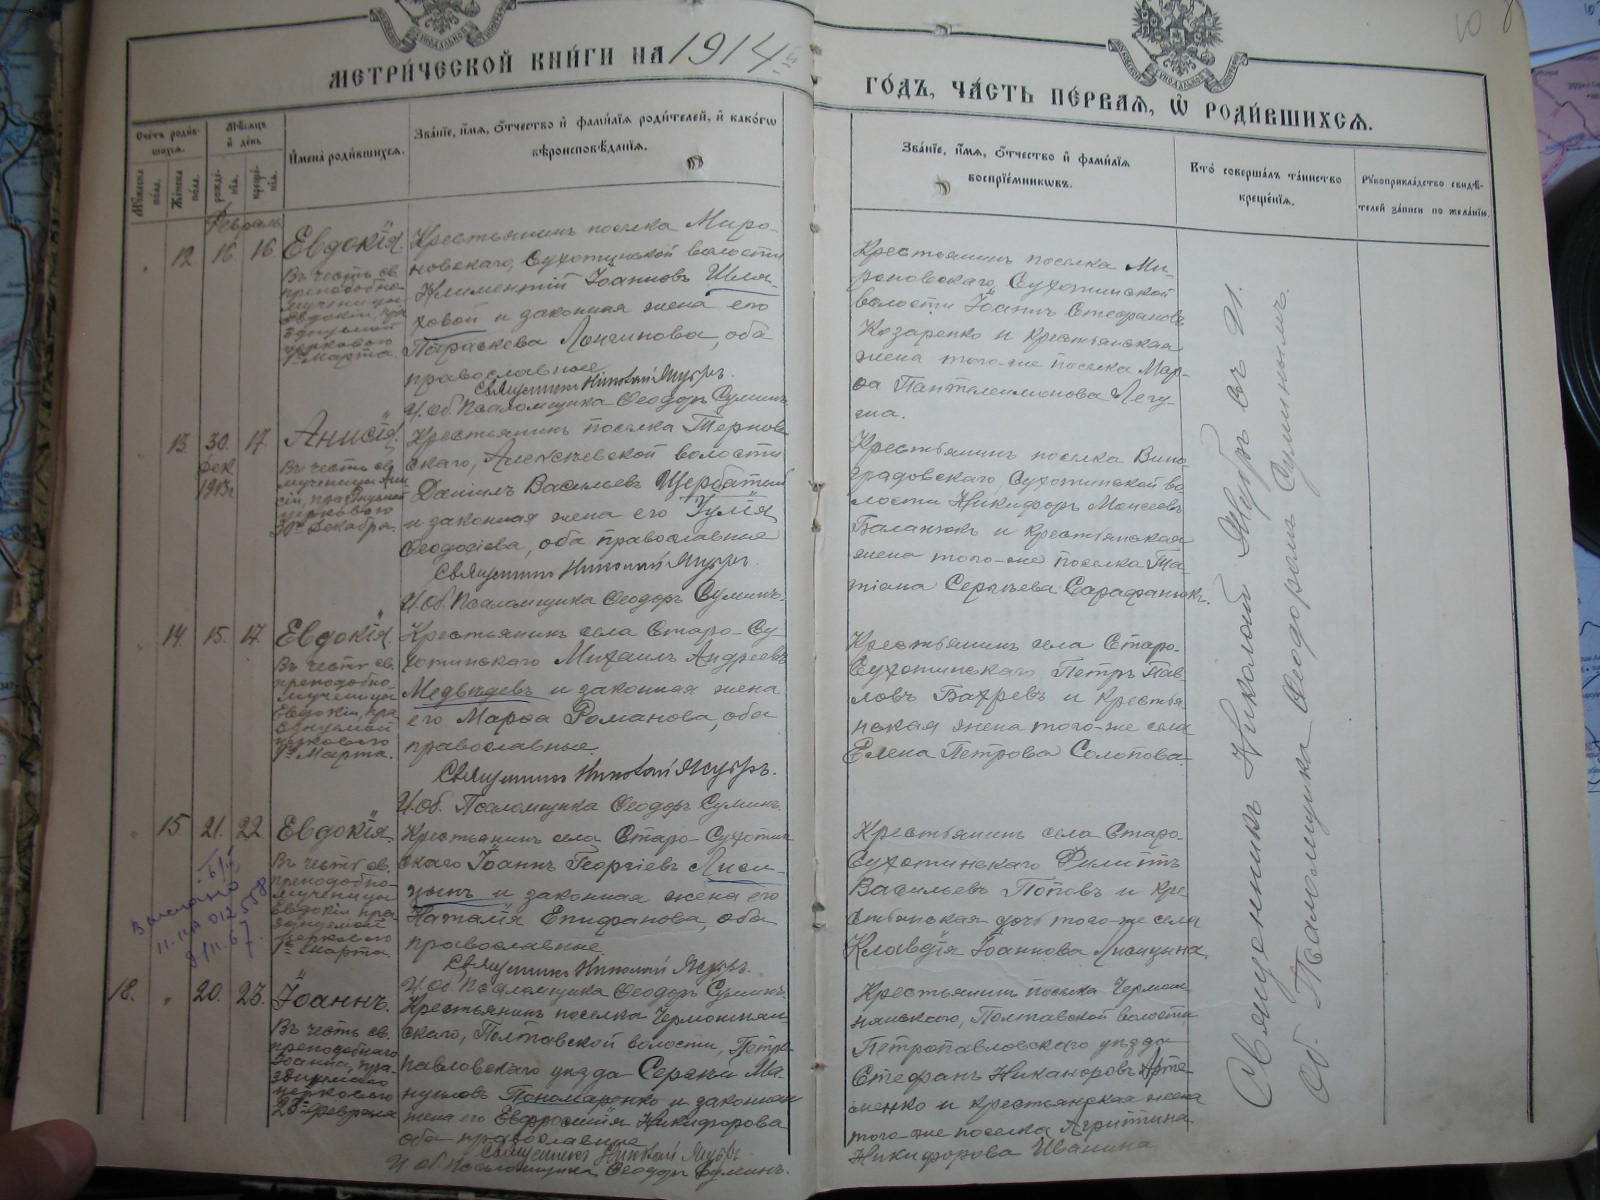 МЕТРИ́ЧЕСКОЙ КНИ́ГИ НА 1914й
ГО́ДЪ, ЧА́СТЬ ПЕ́РВАЯ, Ѡ РОДИ́ВШИХСЯ.
Сче́тъ роди́в-
шихся.
Му́жеска
по́ла.
Же́нска
по́ла.
Мѣ́сяцъ
и҆ де́нь
рожде́-
нїя.
креще́-
нїя.
И҆мена̀ роди́вшихся.
Зва́нїе, и҆́мя, ѻ҆́тчество и҆ фами́лїя роди́телей, и҆ како́гѡ
вѣроисповѣ́данїя.
Зва́нїе, и҆́мя, ѻ҆́тчество и҆ фами́лїя
воспрїе́мникѡвъ.
Кто̀ соверша́лъ та́инство
креще́нїя.
Рꙋкоприкла́дство свидѣ́-
телей за́писи по жела́нїю.
Февраль
12 16 16 Евдокія
Въ честь св.
преподобно-
мученицы
Евдокіи, пра-
зднуемой
церковію
1го Марта.
Крестьянинъ поселка Миро-
новскаго, Сухотинской волости
Климентій Іоанновъ Шля-
ховой и законная жена его
Параскева Лонгинова, оба
православные.
Священникъ Николай Якубъ.
И. Об. Псаломщика Ѳеодоръ Суминъ.
Крестьянинъ поселка Ми-
роновскаго, Сухотинской
волости Іоаннъ Стефановъ
Козаренко и крестьянская
жена того-же поселка Мар-
ѳа Пантелеимонова Легу-
ша.
13 30. 17. Анисія
Дек
1913г.
Въ честь св.
мученицы Ани-
сіи, празднуемой
церковію
30го Декабря.
Крестьянинъ поселка Тернов-
скаго, Алексѣевской волости
Даніилъ Васильевъ Щербатый
и законная жена его Іулія
Ѳеодосіева, оба православные
Священникъ Николай Якубъ.
И. Об. Псаломщика Ѳеодоръ Суминъ.
Крестьянинъ поселка Вино-
градовскаго, Сухотинской во-
лости Никифоръ Моисеевъ
Баланюкъ и крестьянская
жена того-же поселка Та-
тіана Сергѣева Сарафанюкъ.
14. 15. 17 Евдокія
Въ честь св.
преподобно-
мученицы
Евдокіи, пра-
зднуемой
церковію
1го Марта.
Крестьянинъ села Старо-Су-
хотинскаго Михаилъ Андреевъ
Медвѣдевъ и законная жена
его Марѳа Романова, оба
православные.
Священникъ Николай Якубъ.
И. Об. Псаломщика Ѳеодоръ Суминъ.
Крестьянинъ села Старо-
Сухотинскаго Петръ Пав-
ловъ Бахревъ и крестья-
нская жена того-же села
Елена Петрова Солопова.
15 21. 22 Евдокія.
Въ честь св.
преподобно-
мученицы
Евдокіи пра-
зднуемой
церковію
1го Марта.
Крестьянинъ села Старо-Сухотин-
скаго Іоаннъ Георгіевъ Лиси-
цынъ и законная жена его
Наталія Епифанова, оба
православные
Священникъ Николай Якубъ.
И. Об. Псаломщика Ѳеодоръ Суминъ.
Крестьянинъ села Старо-
Сухотинскаго Филиппъ
Васильевъ Поповъ и кре-
стьянская дочь того-же села
Клавдія Іоаннова Лисицына.
18. 20. 23. Іоаннъ.
Въ честь св.
преподобнаго
Іоанна, пра-
зднуемаго
церковію
Февраля
Крестьянинъ поселка Чермошнян-
скаго, Полтавской волости, Петро-
павловскаго уѣзда Сергѣй Ма-
нуиловъ Пономаренко и законная
жена его Евфросинія Никифорова
оба православные
Священникъ Николай Якубъ.
И. об. Псаломщика Ѳеодоръ Суминъ.
Крестьянинъ поселка Чермош-
нянскаго, Полтавской волости
Петропавловскаго уѣзда
Стефанъ Никаноровъ Арте-
менко и крестьянская жена
того-же поселка Агриппина
Никифорова Иванина
Священникъ Николай Якубъ
Об. Псаломщика Ѳеодоръ Суминъ.